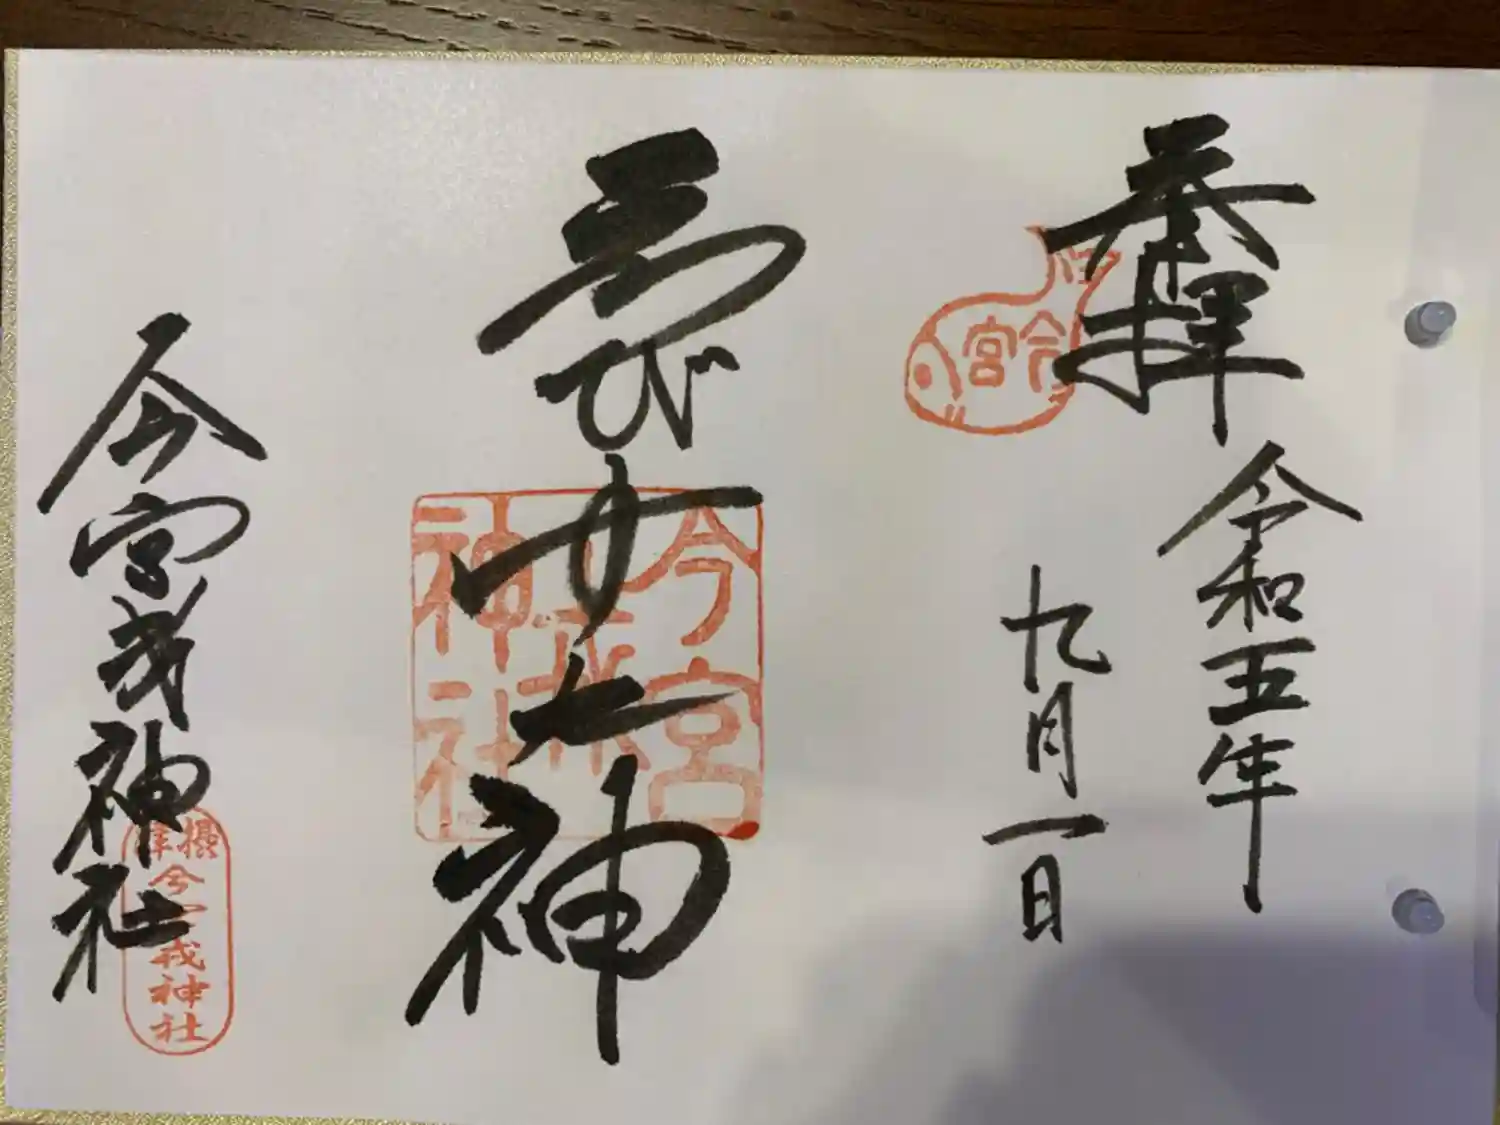 奉拝
令和五年
九月一日
今宮
ゑびす大神
今宮
戎
神社
今宮戎神社
攝津
今宮戎神社